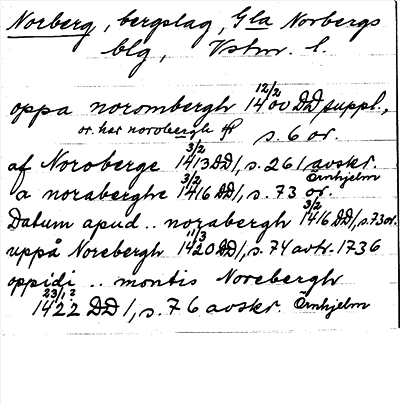 Norberg, bergslag, Gla Norbergs
blg, Vstm. l.
oppa norombergh 12/2 1400 DD suppl.,
or. har norobergh
s. 6 or.
af Noroberge 3/2 1413 DD 1, s. 261 avskr. Örnhjelm
a noraberghe 3/2 1416 DD 1, s. 73 or.
Datum apud .. norabergh 3/2 1416 DD 1, s. 73 or.
uppå Norebergh 11/3 1420 DD 1, s. 74 avtr. 1736
oppidi .. montis Norebergh
23/12 1422 DD 1, s. 76 avskr. Örnhjelm